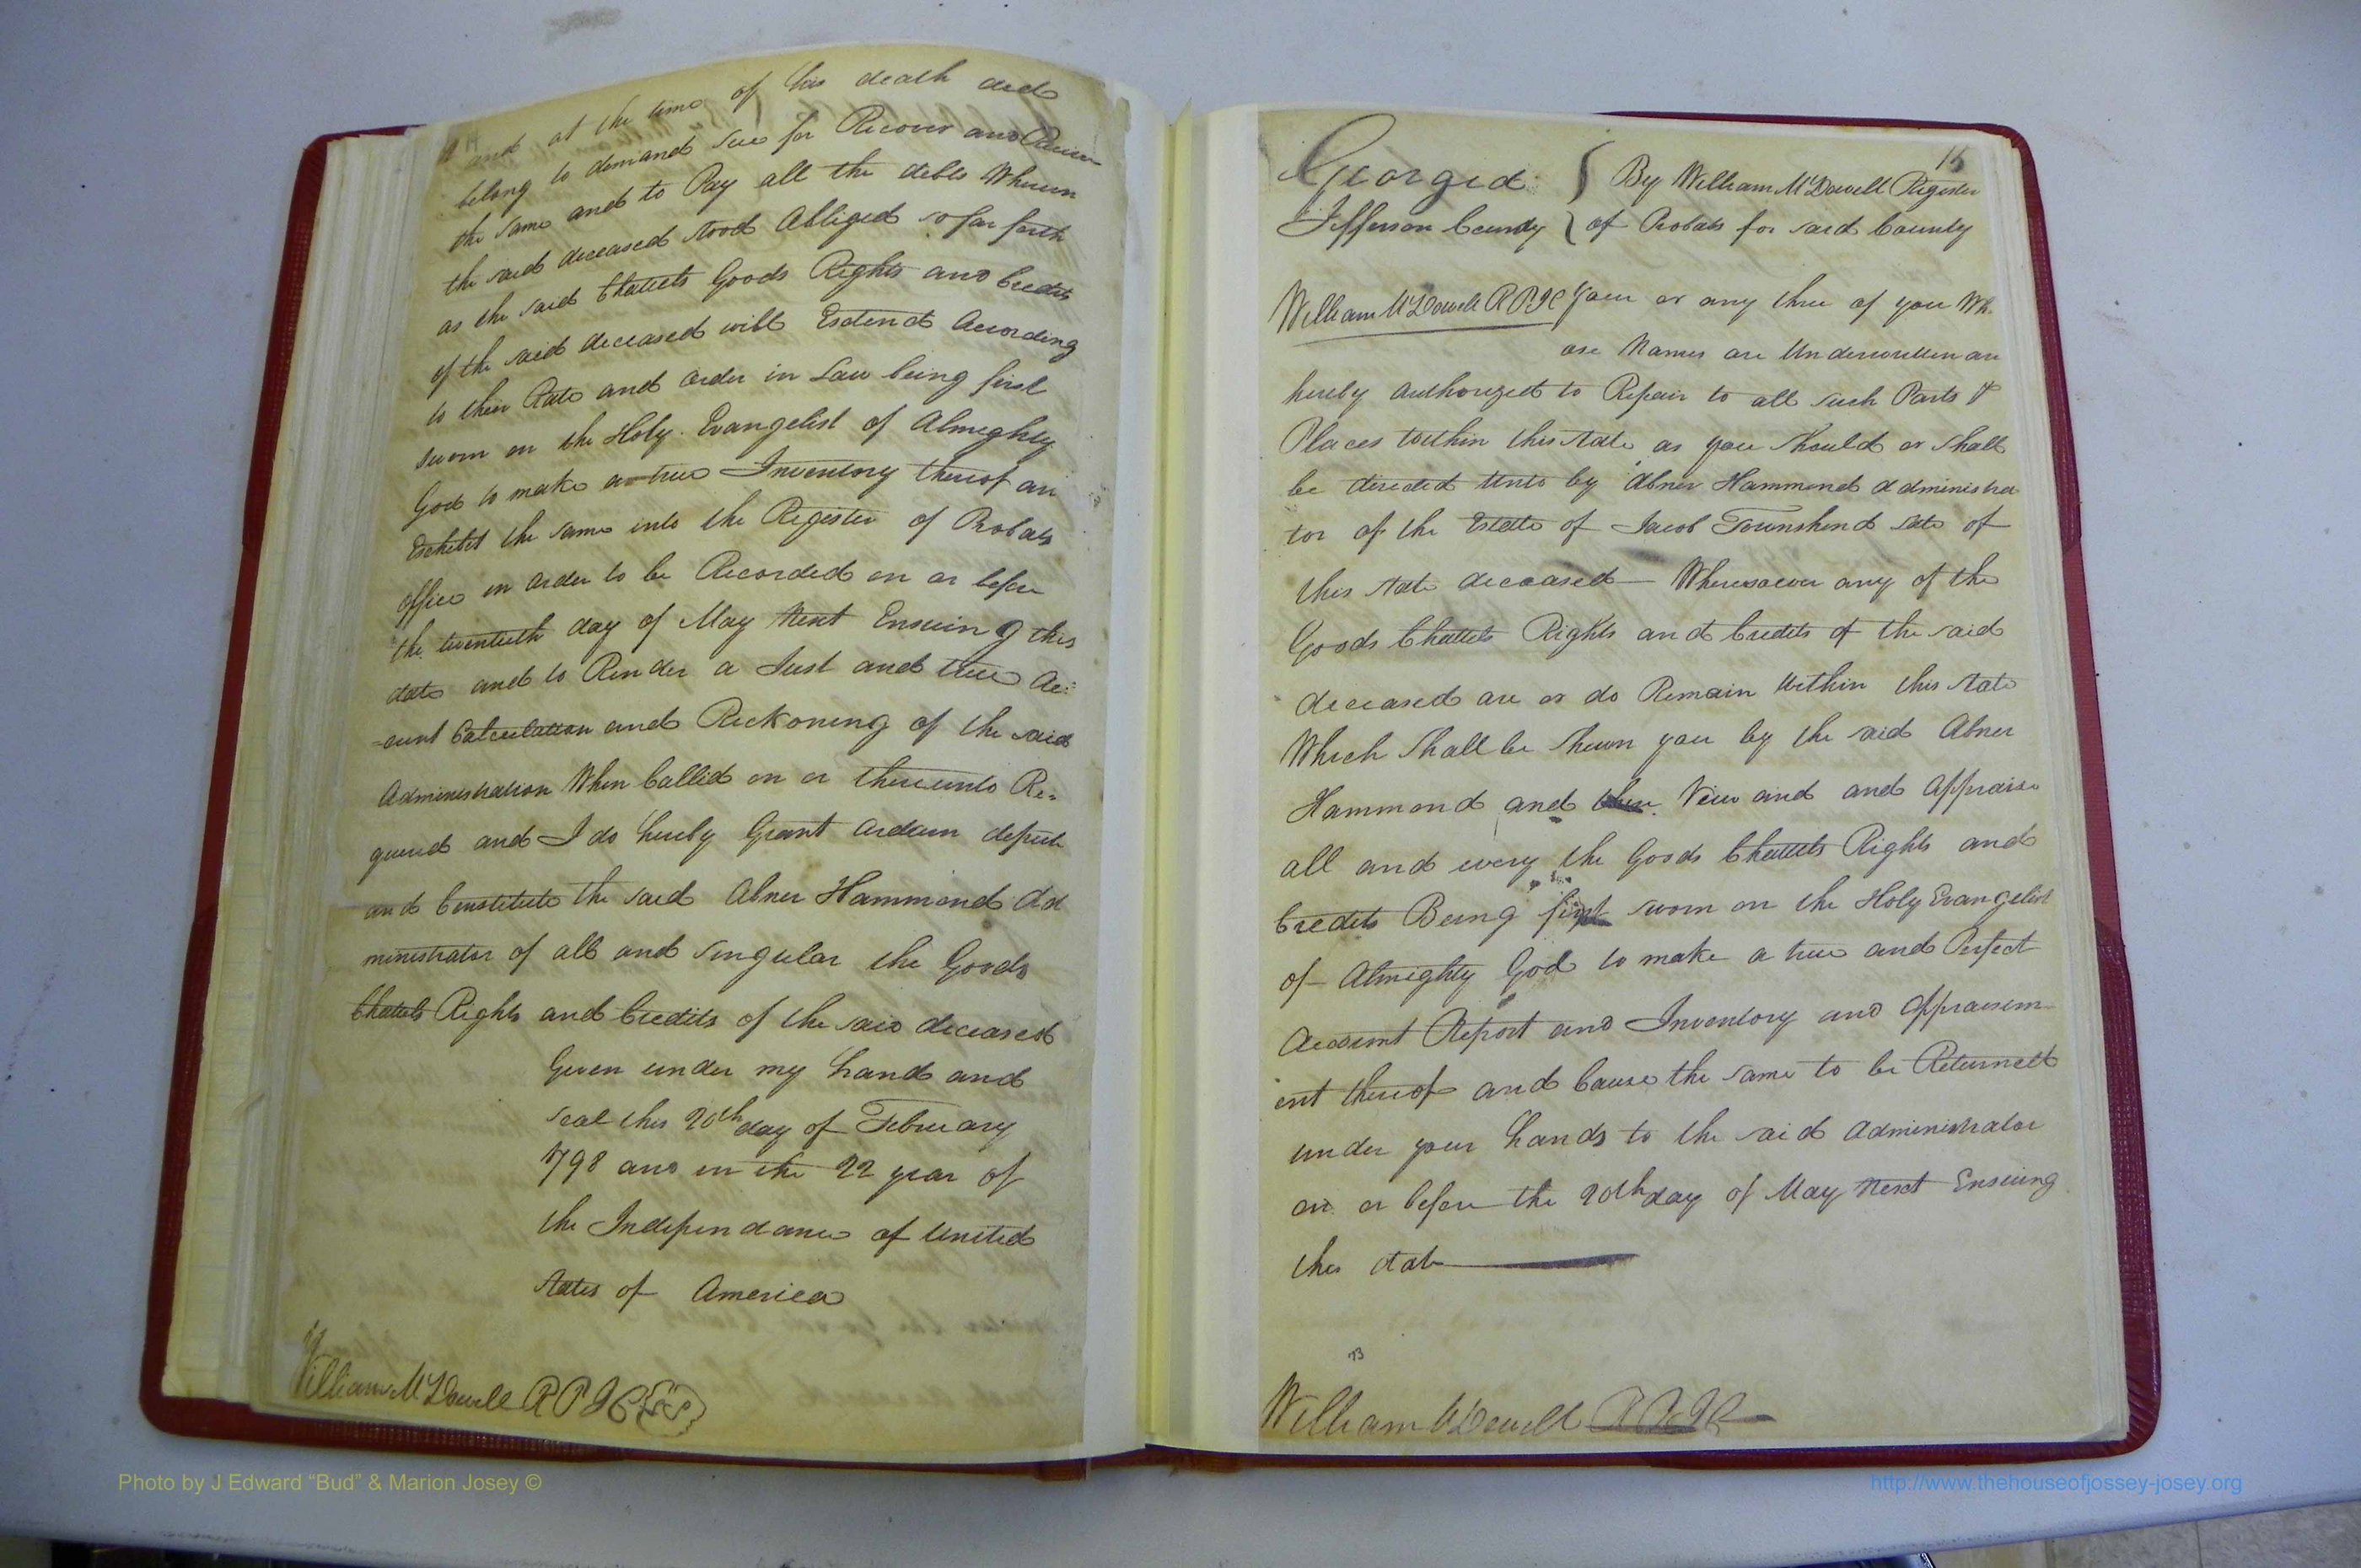 and at the time of his death did
belong to demand sue for Recover and Receive
the same and to Pay all the debts Wherein
the said deceased stood Obliged so far forth
as the said Chattels Goods Rights and Credits
of the said deceased will Extend According
to their Rate and order in Law being first
sworn on the Holy Evangelist of Almighty
God to make a true Inventory thereof an
Exhibit the same into the Register of Probats
office in order to be Recorded on or before
the twentieth day of May Next Ensuing this
date and to Render a Just and true Ac=
=ount Calculation and Reckoning of the said
Administration When Called on or thereunto Re=
quired and I do hereby Grant Ordain depute
and Constitute the said Abner Hammond Ad
ministrator of all and singular the Goods
Chattels Rights and Credits of the said deceased
Given under my hand and
seal this 20th day of February
1798 and in the 22 year of
the Independance of United
States of America
William McDowell R P J C
16
Georgia } By William McDowell Register
Jefferson County } of Probats for said County
William McDowell R P J C You or any three of you Wh.
ose Names are Underwritten are
hereby authorized to Repair to all such Parts &
Places Within this State as you should or shall
be directed Unto by Abner Hammond administra
tor of the Estate of Jacob Townshend late of
this State deceased — Wheresoever any of the
Goods Chattels Rights and Credits of the said
deceased are or do Remain Within this State
Which shall be shewn you by the said Abner
Hammond and View and and appraise
all and every the Goods Chattels Rights and
Credits Being first sworn on the Holy Evangelist
of Almighty God to make a true and Perfect
Account Report and Inventory and appraisem
ent thereof and Cause the same to be Returned
under your hands to the said administrator
on or before the 20th day of May Next Ensuing
this date
William McDowell R P J C
Photo by J Edward “Bud” & Marion Josey ©
http://www.thehouseofjossey-josey.org